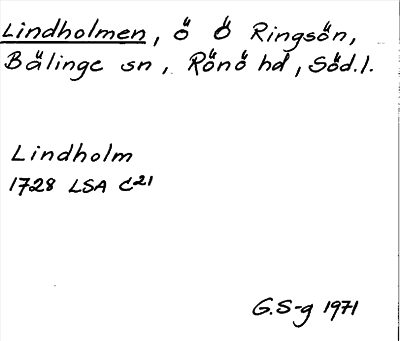 Lindholmen, ö Ö Ringsön,
Bälinge sn, Rönö hd, Söd.l.
Lindholm
1728 LSA C21
G.S-g 1971